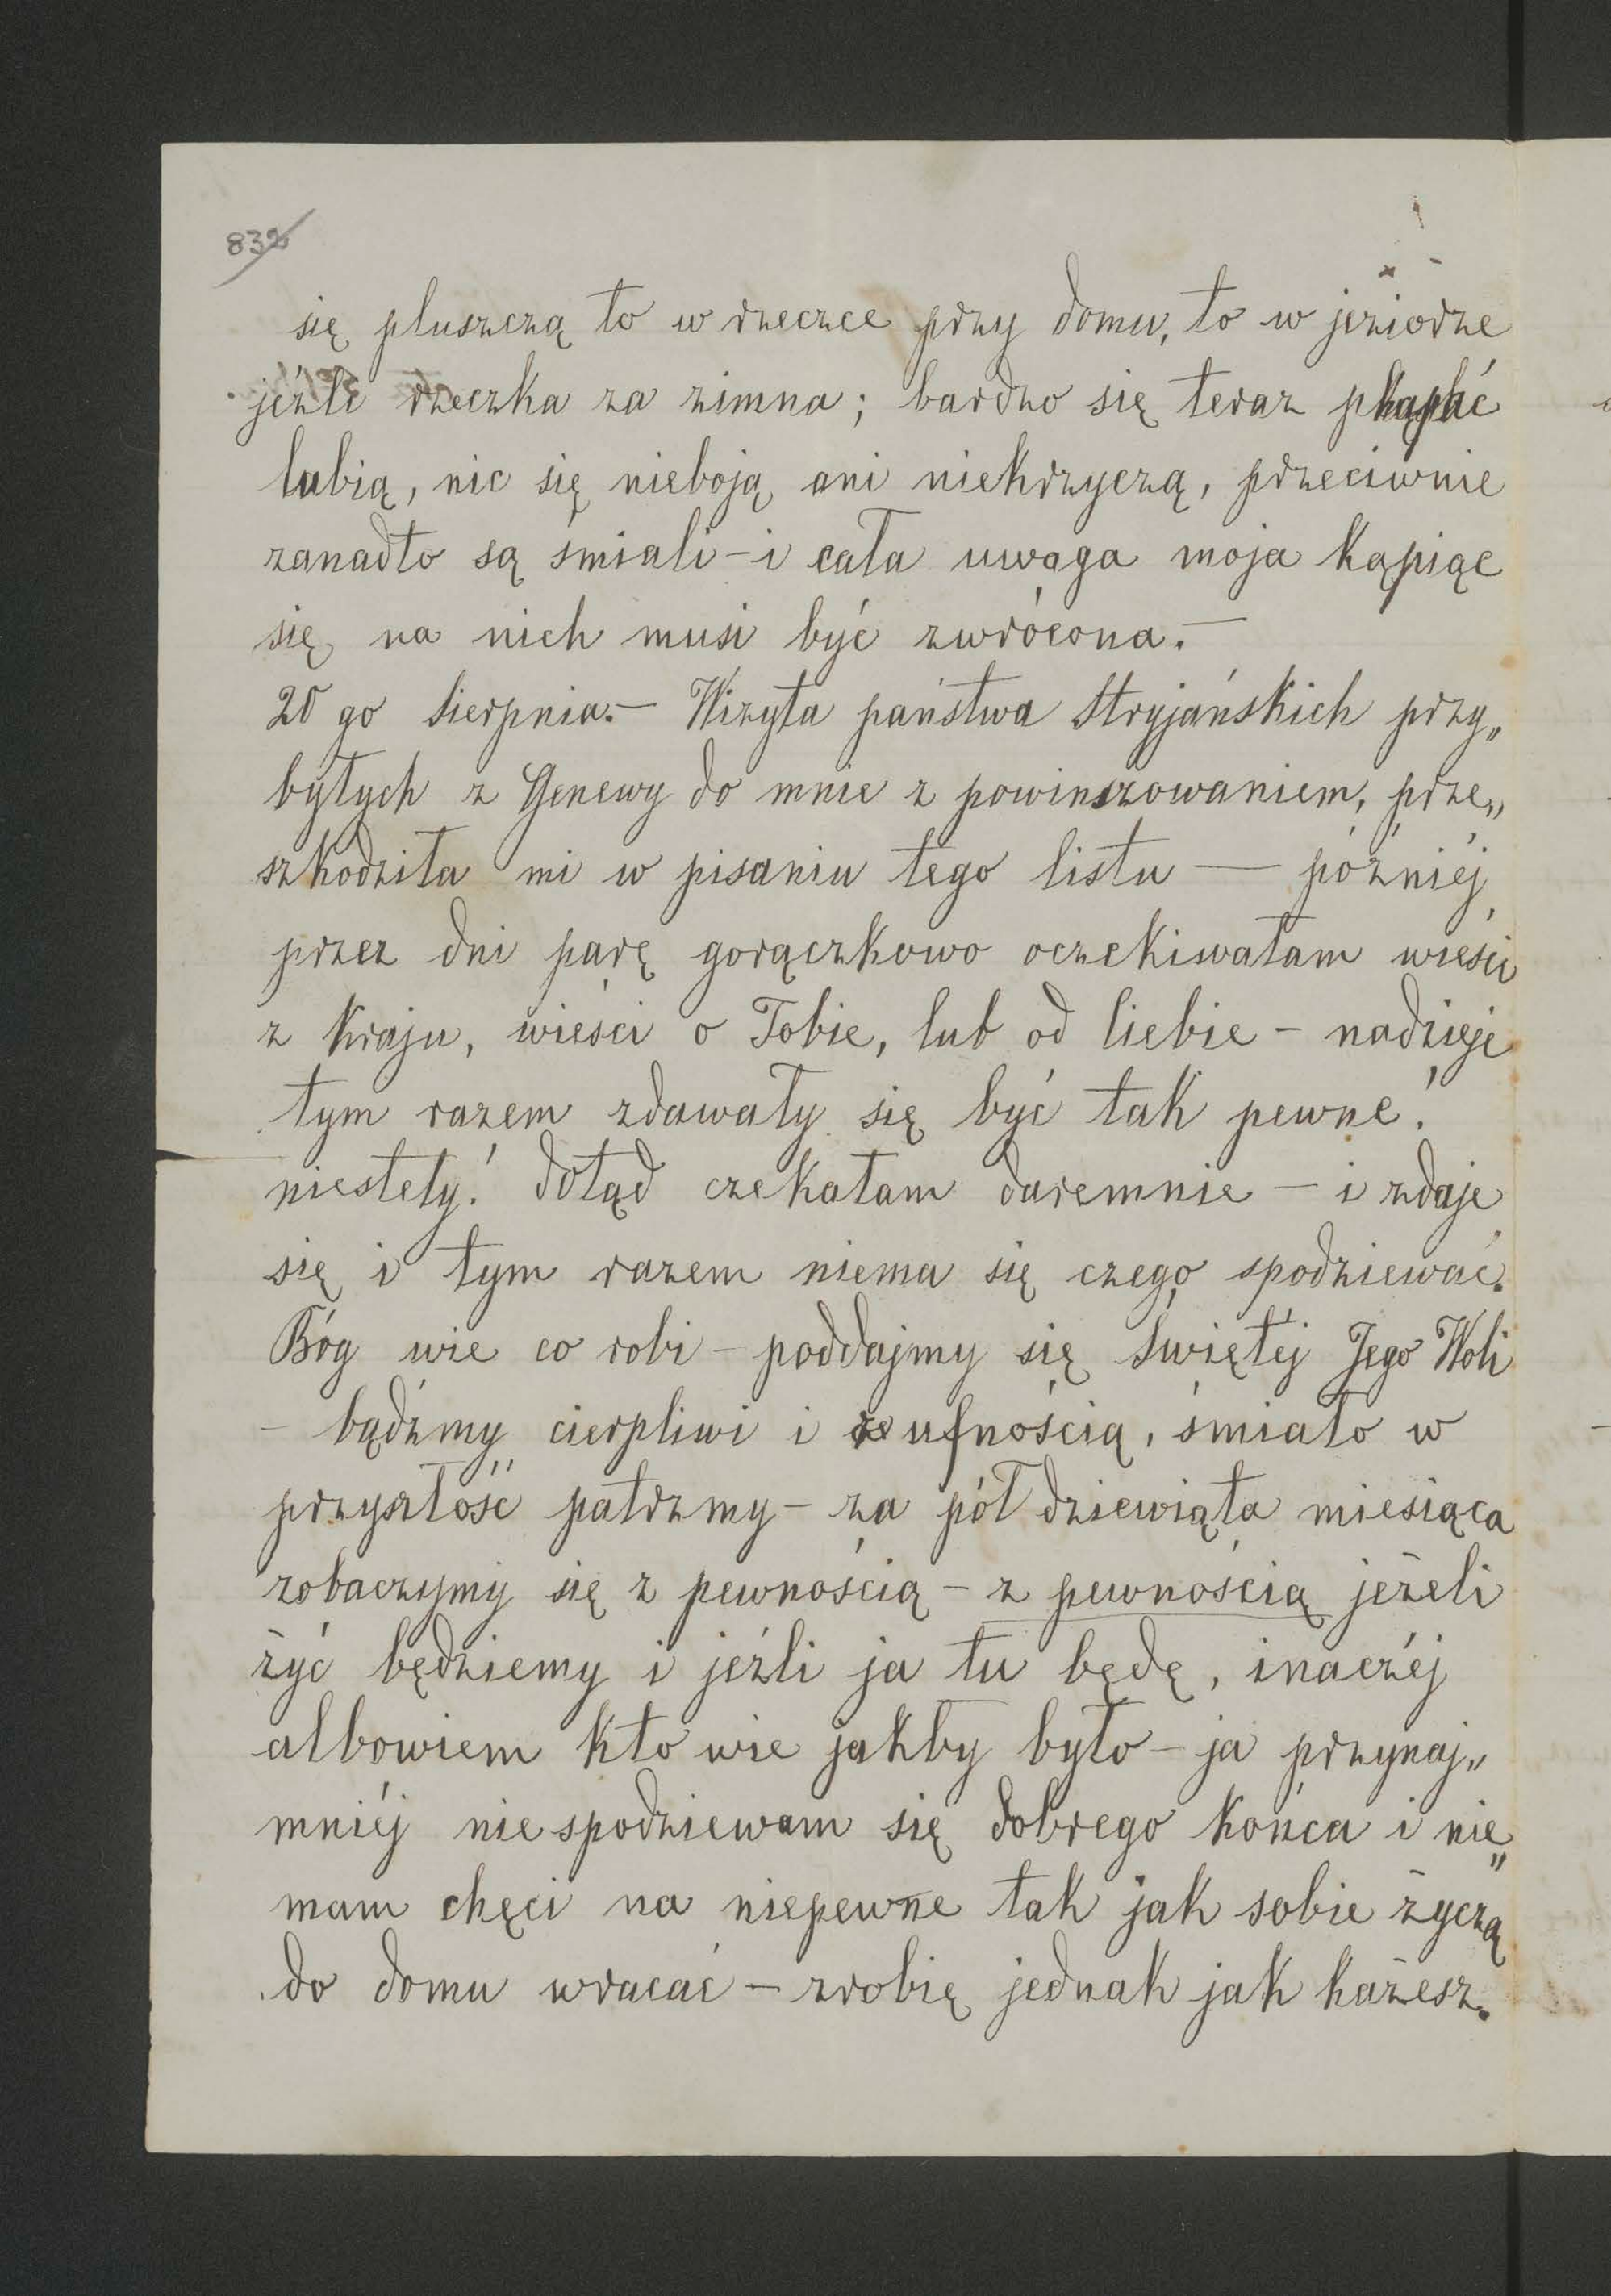 832
się pluszczą to w rzeczce przy domu, to w jeziorze
jeźli rzeczka za zimna; bardzo się teraz kąpać
lubią, nic się nieboją ani niekrzyczą, przeciwnie
zanadto są śmiali – i cała uwaga moja kąpiąc
się na nich musi być zwrócona. –
20 go Sierpnia. – Wizyta państwa Stryjańskich przy„
byłych z Genewy do mnie z powinszowaniem, prze„
szkodziła mi w pisaniu tego listu — późniéj
przez dni parę gorączkowo oczekiwałam wieści
z kraju, wieści o Tobie, lub od Ciebie – nadzieje
tym razem zdawały się być tak pewne!
niestety! dotąd czekałam daremnie – i zdaje
się i tym razem niema się czego spodziewać.
Bóg wie co robi – poddajmy się Świętéj Jego Woli
– bądźmy cierpliwi i z ufnością, śmiało w
przyszłość patrzmy – za pół dziewiąta miesiąca
zobaczymy się z pewnością – z pewnością jeżeli
żyć będziemy i jeźli ja tu będę, inaczéj
albowiem kto wie jakby było – ja przynaj„
mniéj niespodziewam się dobrego końca i nie„
mam chęci na niepewne tak jak sobie życzą
do domu wracać – zrobię jednak jak każesz.